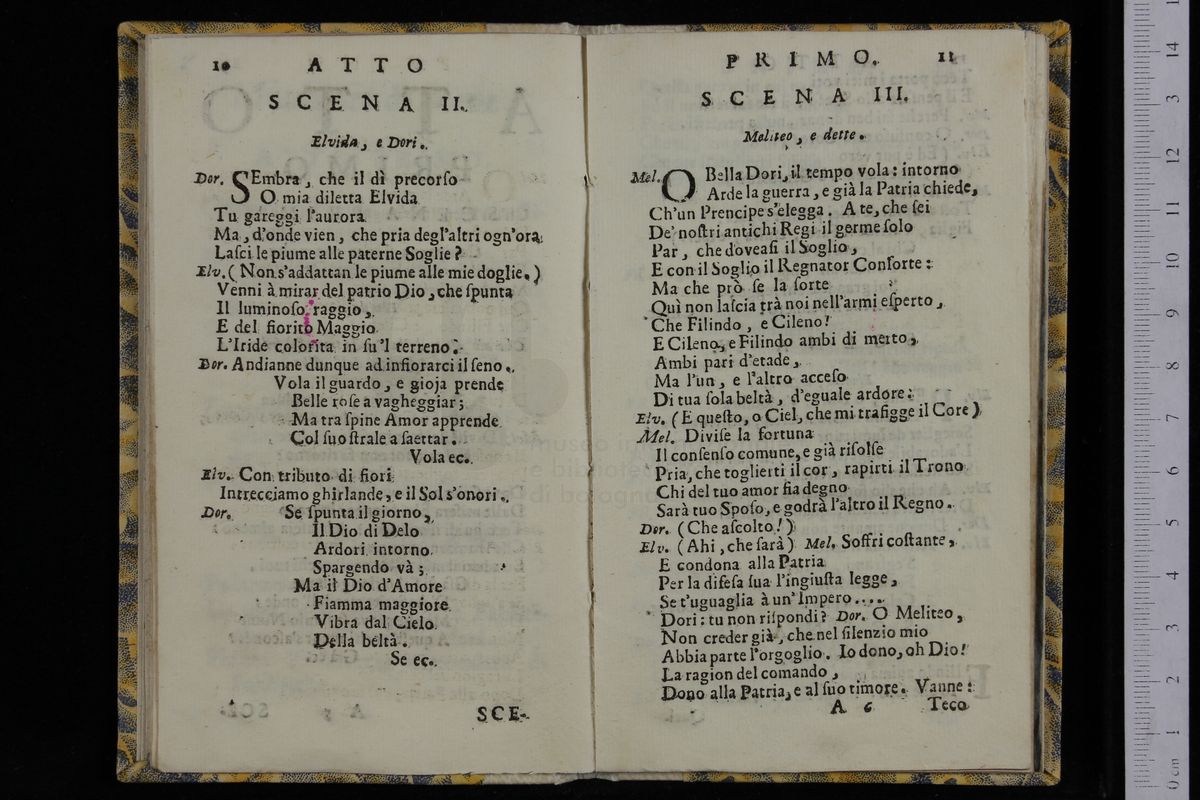 10 ATTO
SCENA II.
Elvida, e Dori.
Dor. SEmbra, che il dì precorſo
O mia diletta Elvida
Tu gareggi l'aurora
Ma, d'onde vien, che pria degl'altri ogn'ora
Laſci le piume alle paterne Soglie?
Elv. (Non s'addattan le piume alle mie doglie.)
Venni à mirar del patrio Dio, che ſpunta
Il luminoſo raggio,
E del fiorito Maggio
L'Iride colorita in ſu'l terreno.
Dor. Andianne dunque ad infiorarci il ſeno.
Vola il guardo, e gioja prende
Belle roſe a vagheggiar;
Ma tra ſpine Amor apprende
Col ſuo ſtrale a ſaettar.
Vola ec.
Elv. Con tributo di fiori
Intrecciamo ghirlande, e il Sol s'onori.
Dor. Se ſpunta il giorno,
Il Dio di Delo
Ardori intorno
Spargendo và;
Ma il Dio d'Amore
Fiamma maggiore
Vibra dal Cielo
Della beltà.
Se ec.
SCE-
PRIMO. 11
SCENA III.
Meliteo, e dette.
Mel. O Bella Dori, il tempo vola: intorno
Arde la guerra, e già la Patria chiede,
Ch'un Prencipe s'elegga. A te, che ſei
De' noſtri antichi Regi il germe ſolo
Par, che doveaſi il Soglio,
E con il Soglio il Regnator Conſorte:
Ma che prò ſe la ſorte
Quì non laſcia trà noi nell'armi eſperto,
Che Filindo, e Cileno!
E Cileno, e Filindo ambi di merto,
Ambi pari d'etade,
Ma l'un, e l'altro acceſo
Di tua ſola beltà, d'eguale ardore:
Elv. (E queſto, o Ciel, che mi trafigge il Core)
Mel. Diviſe la fortuna
Il conſenſo comune, e già riſolſe
Pria, che toglierti il cor, rapirti il Trono
Chi del tuo amor fia degno
Sarà tuo Spoſo, e godrà l'altro il Regno.
Dor. (Che aſcolto!)
Elv. (Ahi, che ſarà) Mel. Soffri coſtante,
E condona alla Patria
Per la difeſa ſua l'ingiuſta legge,
Se t'uguaglia à un' Impero....
Dori: tu non riſpondi? Dor. O Meliteo,
Non creder già, che nel ſilenzio mio
Abbia parte l'orgoglio. Io dono, oh Dio!
La ragion del comando,
Dono alla Patria, e al ſuo timore. Vanne:
A 6 Teco